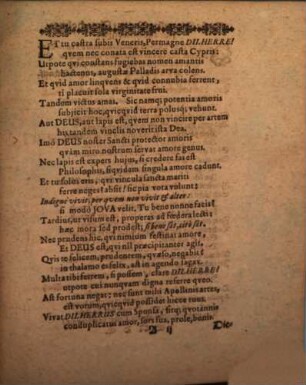 ET tu castra subis Veneris, Permagne DILHERRE!
quem nec conata est vincere casta Cypris:
Utpote qui constans fugiebas nomen amantis
hactenus, augustæ Palladis arva colens.
Et quid amor linquens & quid connubia ferrent,
ti placuit sola virginitate frui.
Tandem victus amas. Sic namq; potentia amoris
subjicit hoc, quicquid terra polusq; vehunt.
Aut DEUS, aut lapis est, quem non vincire per artem
hu, tandem vinclis noverit ista Dea.
Imò DEUS noster Sancti protector amoris
quàm miro nostrum servat amore genus.
Nec lapis est expers hujus, si credere fas est
Philosophis, siquidam singula amore cadunt.
Et tu solus eris, qui vincula sancta mariti
ferre neget? absit! sic pia vota volunt:
Indignè vivit, per quem non vivit & alter:
si modò JOVA velit. Tu bene nonne facis?
Tardiùs, ut visum est, properas ad fœdera lecti:
hæc mora sed prodest; si bene sit, citò sit.
Nec prudens hic, qui nimiùm festinat amore,
Et DEUS est, qui nil præcipitanter agit.
Quis te felicem, prudentem, quæso, negabit?
in thalamo es felix, ast in agendo sagax.
Multa tibi ferrem, si possem, clare DILHERRE
utpote cui nunquam digna referre queo.
Ast fortuna negat: nec sunt mihi Apollinis artes,
est votum, quicquid possidet hicce tuus.
Vivat DILHERRUS cum Sponsa, sitq; quotannis
conduplicatus amor, fors sua, prole, bonis.